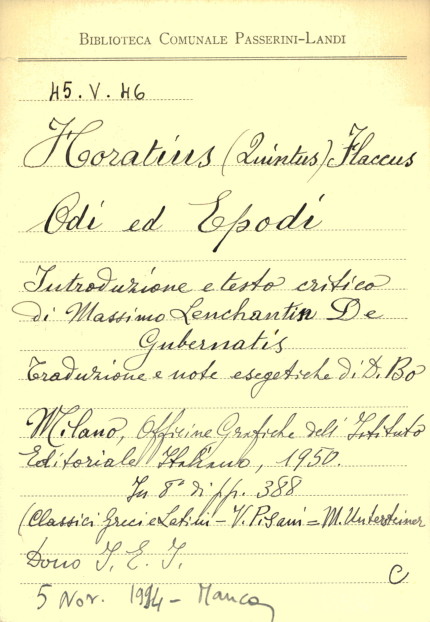 BIBLIOTECA COMUNALE PASSERINI-LANDI
45.V.46
Horatius (Quintus) Flaccus
Odi ed Epodi
Introduzione e testo critico
di Massimo Lenchantin De
Gubernatis
Traduzione e note esegetiche di D. Bo
Milano, Officine Grafiche dell'Istituto
Editoriale Italiano, 1950.
In 8° di pp. 388
(Classici Greci e Latini - V. Pisani = M. Untersteiner
Dono I. E. I.
C
5 Nov. 1994 - Manca